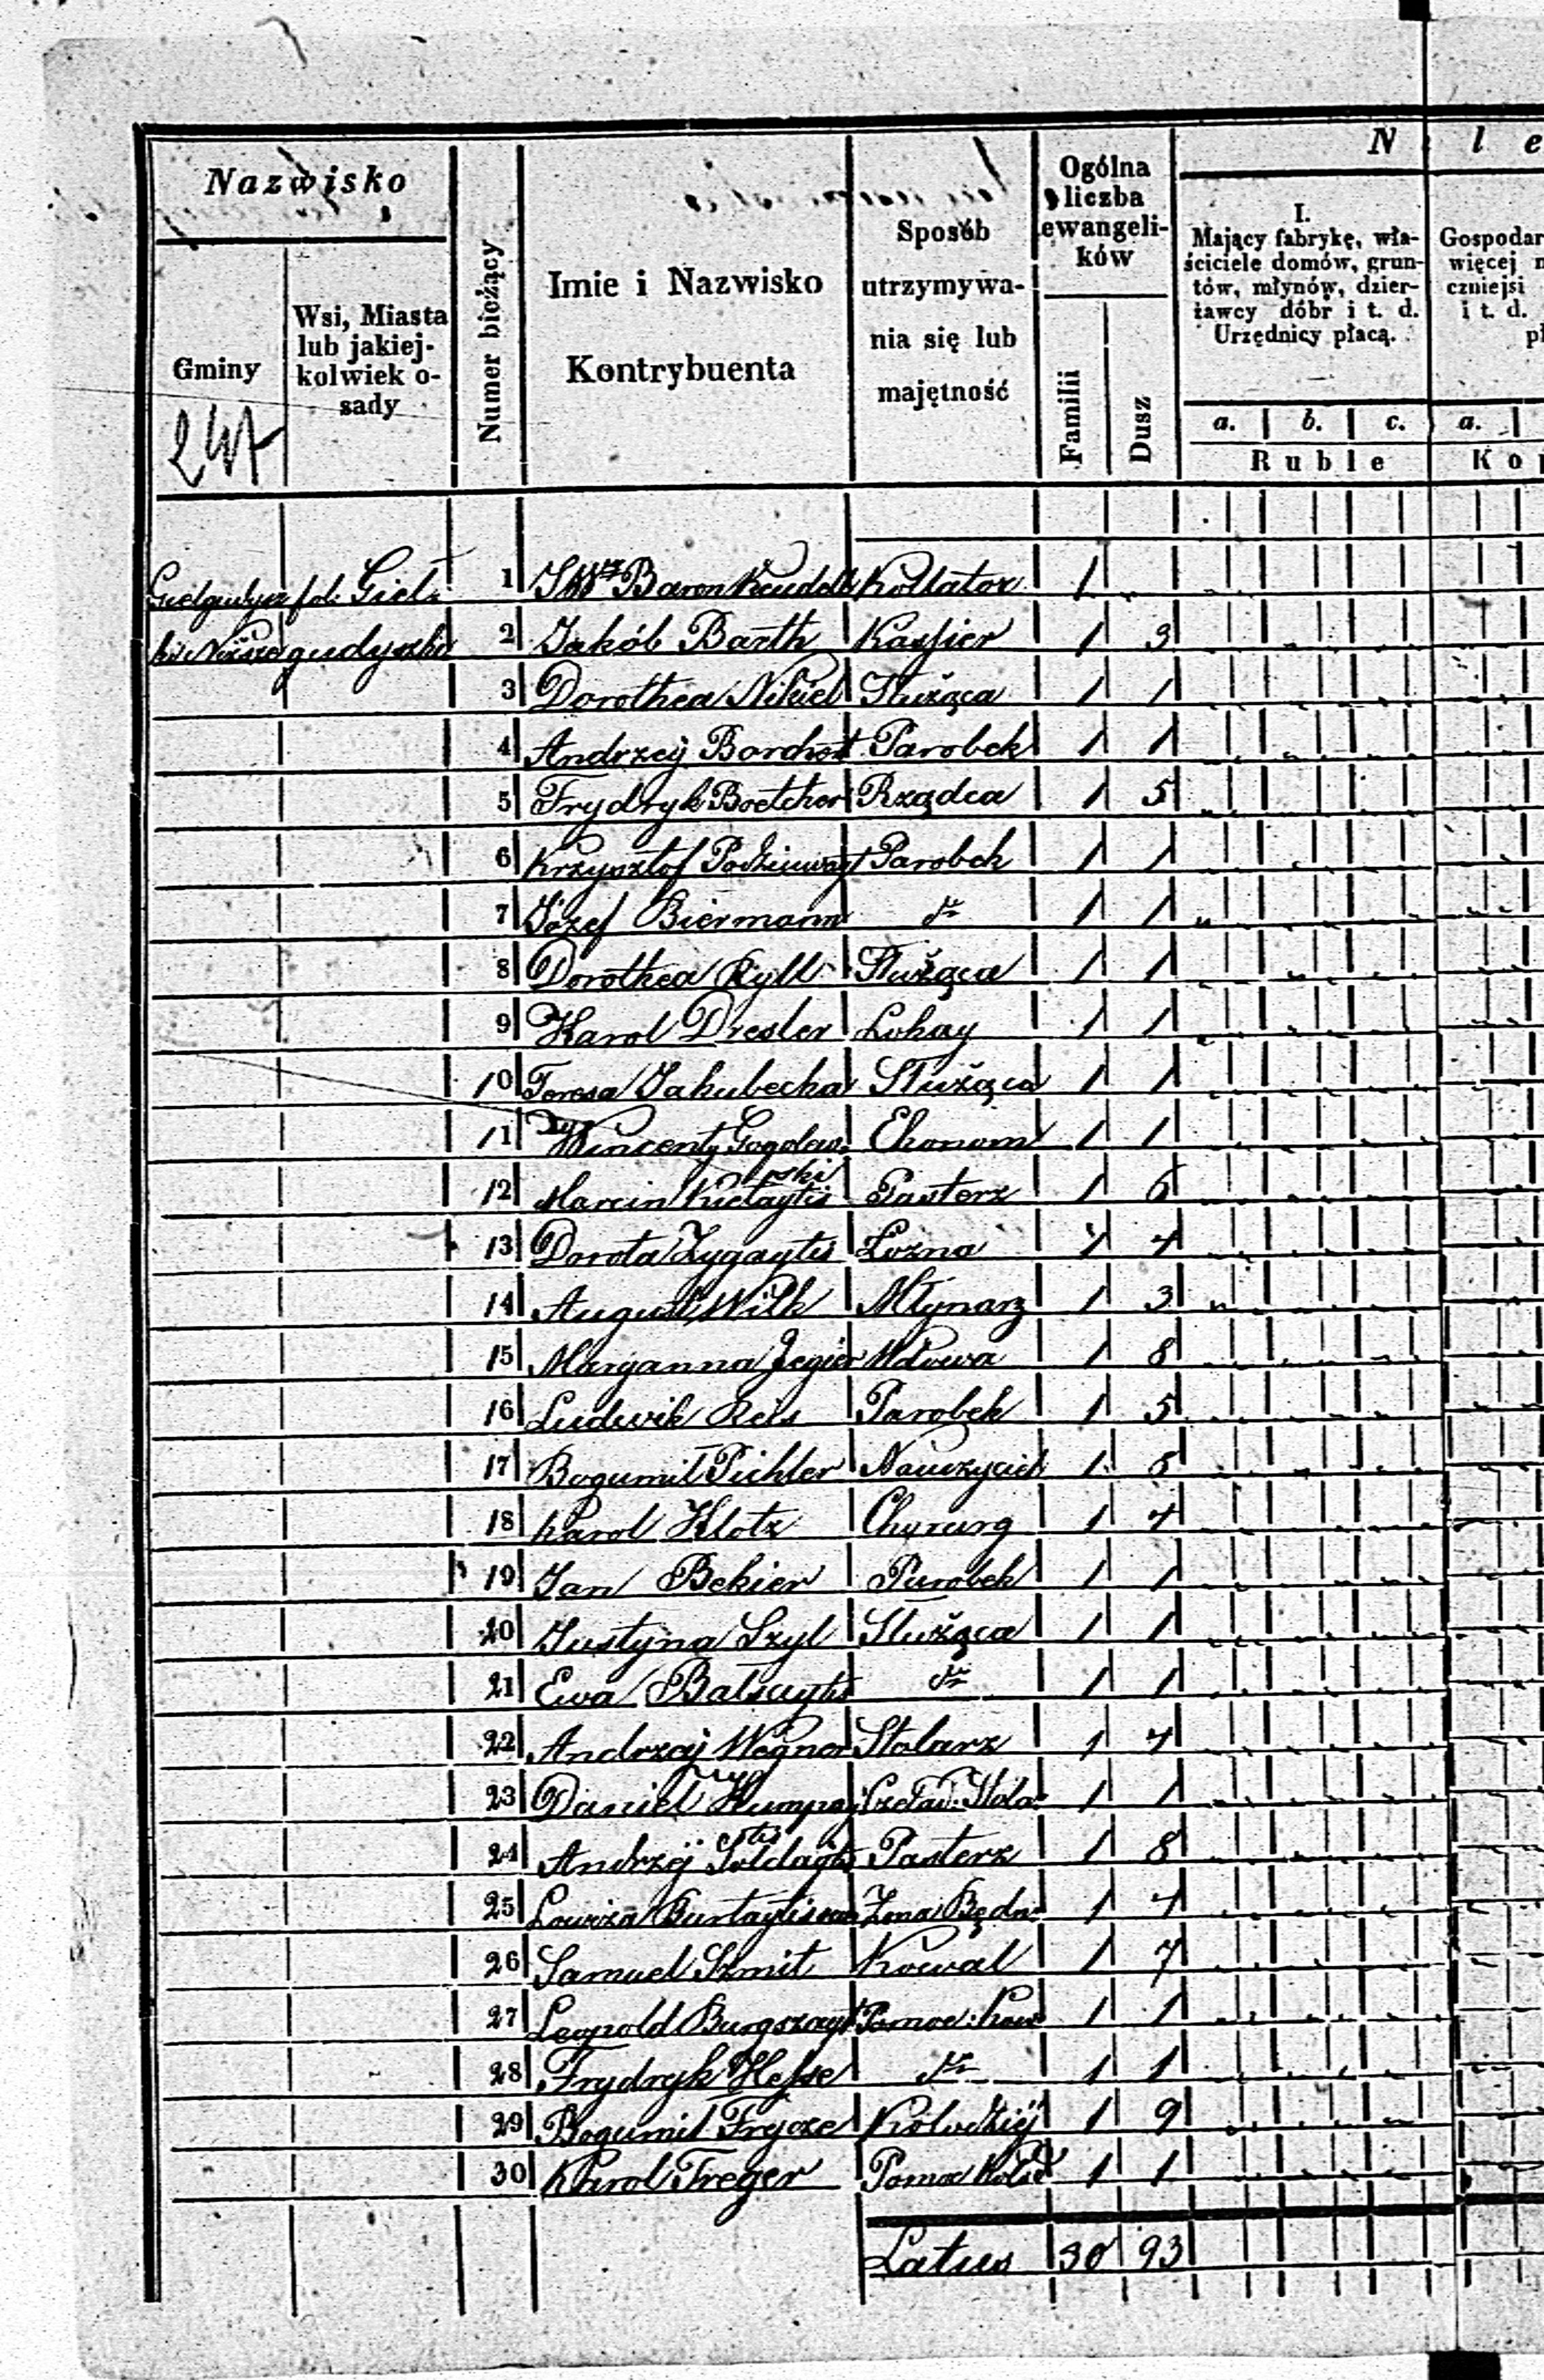 Nazwisko
Gminy
Wsi, Miasta
lub jakiej-
kolwiek o-
sady
Numer bieżący
Imie i Nazwisko
Kontrybuenta
Sposób
utrzymywa-
nia się lub
majętność
Ogólna
liczba
ewangeli-
ków
Familii
Dusz
N i e
I.
Mający fabrykę, wła-
ściciele domów, grun-
tów, młynów, dzier-
żawcy dóbr i t. d.
Urzędnicy płacą.
a. b. c.
Ruble
Gospodar
więcej
czniejsi
i t. d.
a.
Kop
fol. Giel
gudyszki
1 Baron Keudell Kollator 1
2 Jakób Barth Kassier 1 3
3 Dorothea Nikiel Służąca 1 1
4 Andrzeÿ Borchert Parobek 1 1
5 Frydryk Boetcher Rządca 1 5
6 Krzysztof Parobek 1 1
7 Józef Biermann dto 1 1
8 Dorothea Kyll Służąca 1 1
9 Karol Dresler Lokay 1 1
10 Teresa Jakubecka Służąca 1 1
11 Wincenty Gogolew- Ekonom 1 1
ski
12 Marcin Kielaytis Pasterz 1 6
13 Dorota Zygaytis Lozna 1 4
14 August Wilk Młynarz 1 3
15 Maryanna Jegier Wdowa 1 8
16 Ludwik Reis Parobek 1 5
17 Bogumił Pichler Nauczyciel 1 8
18 Karol Klotz Chyrurg 1 4
19 Jan Bekier Parobek 1 1
20 Justyna Szyl Służąca 1 1
21 Ewa dto 1 1
22 Andrzej Wegner Stolarz 1 4
23 Daniel Kumpaj Czelad: Stola: 1 1
tis
24 Andrzej Soldaytis Pasterz 1 8
25 Lowiza Żona Będn: 1 4
26 Samuel Szmit Kowal 1 7
27 Leopold Burgszayt Pomoc: kow 1 1
28 Frydryk Hesse dto 1 1
29 Bogumił Frycze Kołodziÿ 1 9
30 Karol Freger Pomoc Koło 1 1
Latus 30 93